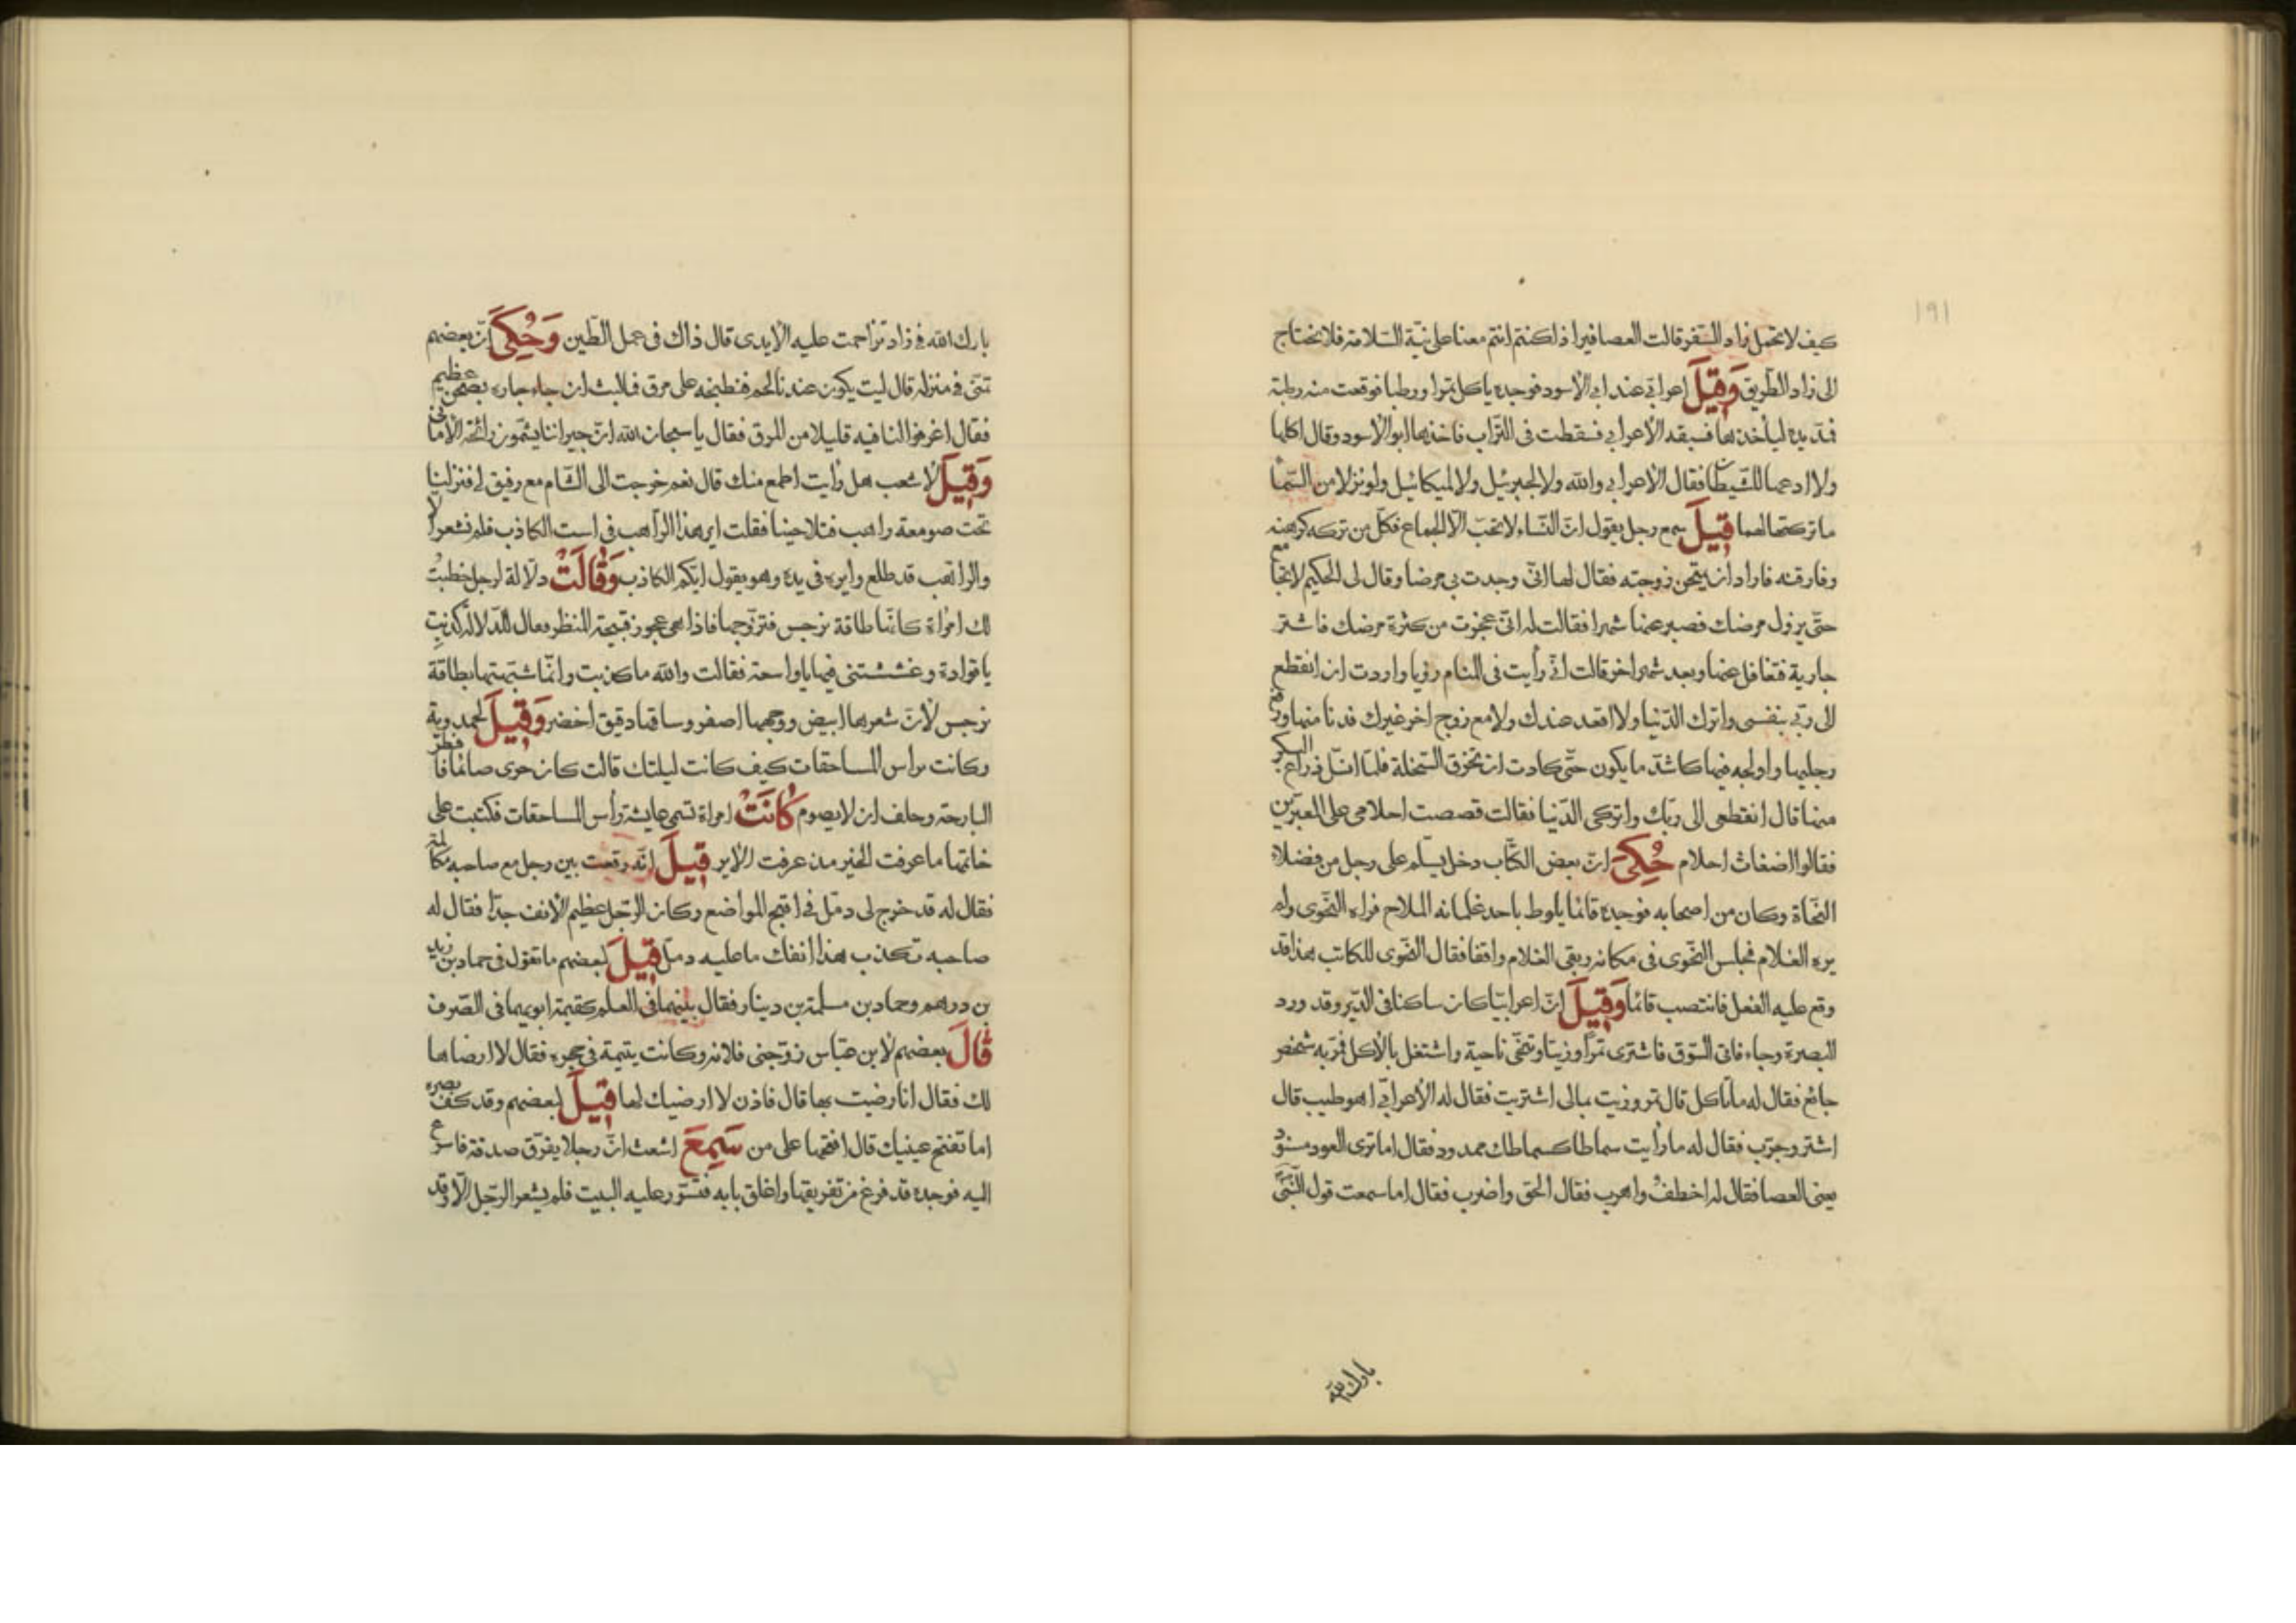 ١٩١
كيف لا تحمل زاد السّفر قالت العصافير اذا كنتم انتم معنا على نيّة السّلامة فلا نحتاج
الى زاد الطّريق وَقِيلَ اعرابيّ عند ابى الأسود فوجده ياكل تمرا ورطبا فوقعت منه رطبة
فمدّ يده لياخذها فسبقه الأعرابى فسقطت فى التّراب فاخذها ابو الأسود وقال اكلها
ولا ادعها للشّيطان فقال الأعرابى والله ولا لجبرئيل ولا لميكائيل ولو نزلا من السّما
ما تركتها لهما قِيلَ سمع رجل يقول انّ النّساء لا تحبّ الّا الجماع فكلّ من تركه كرهنه
وفارقنه فاراد ان يمتحن زوجته فقال لها انّى وجدت بى مرضا وقال لى الحكيم لا تجامع
حتّى يزول مرضك فصبر عنها شهرا فقالت له انّى عجزت من كثرة مرضك فاشتر
جارية فتغافل عنها وبعد شهر اخر قالت انّى رأيت فى المنام رؤيا واردت ان انقطع
الى ربّى بنفسى واترك الدّنيا ولا اقعد عندك ولا مع زوج اخر غيرك فدنا منها ورفع
رجليها واولجه فيها كاشدّ ما يكون حتّى كادت ان تخرق النّخلة فلمّا انسلّ ذراع البكر
منها قال انقطعى الى ربّك واتركى الدّنيا فقالت قصصت احلامى على المعبّرين
فقالوا اضغاث احلام حُكِىَ انّ بعض الكتّاب دخل يسلّم على رجل من فضلاء
النّحاة وكان من اصحابه فوجده قائما يلوط باحد غلمانه الملاح فراه النّحوى ولم
يره الغلام فجلس النّحوى فى مكانه وبقى الغلام واقفا فقال النّحوى للكاتب هذا قد
وقع عليه الفعل فانتصب قائما وَقِيلَ انّ اعرابيّا كان ساكنا فى الدّير وقد ورد
البصرة وجاء فاتى السّوق فاشترى تمراً وزيتا وتنحّى ناحية واشتغل بالأكل فمرّ به شخص
جائع فقال له ما تاكل قال تمر وزيت بمالى اشتريت فقال له الأعرابىّ اهو طيب قال
اشتر وجرّب فقال له ما رأيت سماطا كسماطك ممدود فقال اما ترى العود مسنود
يعنى العصا فقال له اخطفْ واهرب فقال الحق واضرب فقال اما سمعت قول النّبىّ
بارك الله
بارك الله فى زاد تزاحمت عليه الأيدى قال ذاك فى عمل الطّين وَحُكِىَ انّ بعضهم
تمنّى فى منزله قال ليت يكون عندنا لحم فنطبخه على مرق فما لبث ان جاء جاره بصحن عظيم
فقال اغرفوا لنا فيه قليلا من المرق فقال يا سبحان الله انّ جيراننا يشمّون رائحة الأمانى
وَقِيلَ لأشعب هل رأيت اطمع منك قال نعم خرجت الى الشّام مع رفيق لى فنزلنا
تحت صومعة راهب فتلاحينا فقلت اير هذا الرّاهب فى است الكاذب فلم نشعر الّا
والرّاهب قد طلع وايره فى يده وهو يقول ايّكم الكاذب وَقَالَتْ دلّالة لرجل خطبتُ
لك امرأة كانّها طاقة نرجس فتزوّجها فاذا هى عجوز قبيحة المنظر فقال للدّلالة كذبتِ
يا قوّادة وغششتنى فيها يا واسعة فقالت والله ما كذبت وانّما شبّهتها بطاقة
نرجس لأنّ شعرها ابيض ووجهها اصفر وساقها دقيق اخضر وَقِيلَ لحمدوية
وكانت رأس المساحقات كيف كانت ليلتك قالت كان حرى صائما فافطر
البارحة وحلف ان لا يصوم كَانَتْ امراة تسمى عايشة رأس المساحقات فكتبت على
خاتمها ما عرفت الخير مذ عرفت الأير قِيلَ انّه وقعت بين رجل مع صاحبه مكالمة
فقال له قد خرج لى دمّل فى اقبح المواضع وكان الرّجل عظيم الأنف جدّا فقال له
صاحبه تكذب هذا انفك ما عليه دمّل قِيلَ لبعضهم ما تقول فى حماد بن زيد
بن درهم وحماد بن مسلمة بن دينار فقال بينهما فى العلم كقيمة ابويهما فى الصّرف
قَالَ بعضهم لأبن عبّاس زوّجنى فلانه وكانت يتيمة فى حجره فقال لا ارضاها
لك فقال انا رضيت بها قال فاذن لا ارضيك لها قِيلَ لبعضهم وقد كفّ بصره
اما تفتح عينيك قال افتحها على من سَمِعَ اشعث انّ رجلا يفرّق صدقة فاسرع
اليه فوجده قد فرغ من تفريقها واغلق بابه فتسّور عليه البيت فلم يشعر الرّجل الّا وقد